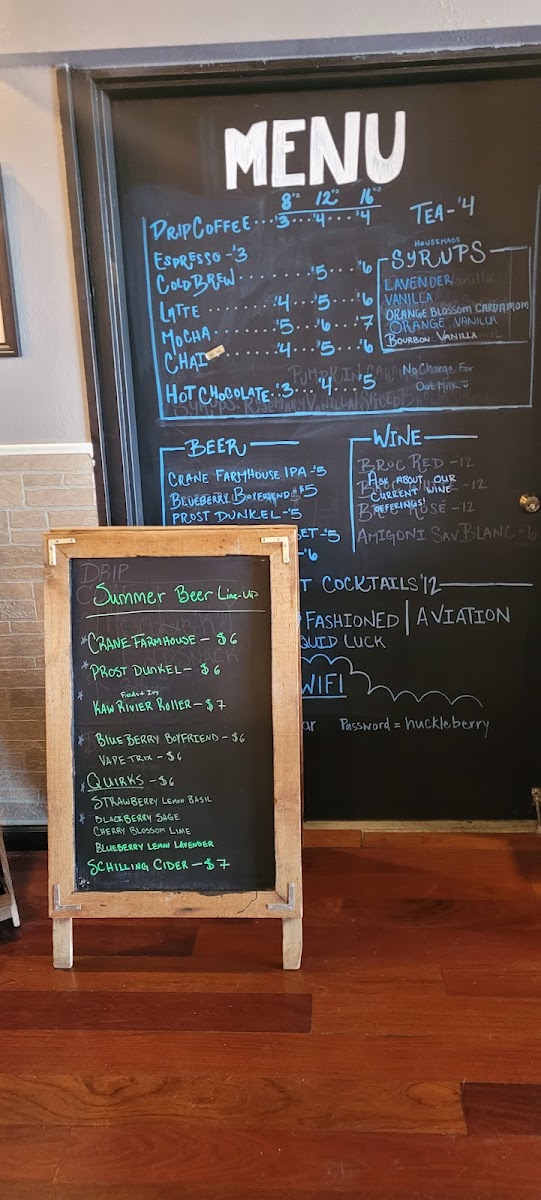 MENU
8oz 12oz 16oz
DRIP COFFEE...$3...$4...$4
TEA-$4
ESPRESSO-$3
COLD BREW.......$5...$6
LATTE.......$4...$5...$6
MOCHA.......$5...$6...$7
CHAI.......$4...$5...$6
HOT CHOCOLATE..$3...$4...$5
HOUSEMADE
SYRUPS
LAVENDER
VANILLA
ORANGE BLOSSOM CARDAMOM
ORANGE VANILLA
BOURBON VANILLA
No Charge For
Oat Milk
BEER
CRANE FARMHOUSE IPA-$5
BLUEBERRY BOYFRIEND $5
PROST DUNKEL-$5
ET-$5
-$6
WINE
BROC RED-12
ASK ABOUT OUR
CURRENT WINE
OFFERINGS!
ROSÉ-12
AMIGONI SAV BLANC-
T COCKTAILS $12
FASHIONED | AVIATION
QUID LUCK
WIFI
ar Password = huckleberry
DRIP
Summer Beer Line-UP
*CRANE FARMHOUSE - $6
*PROST DUNKEL - $6
Fields & Ivy
*KAW RIVIER ROLLER - $7
*BLUEBERRY BOYFRIEND - $6
VAPE TRIX - $6
QUIRKS - $6
STRAWBERRY LEMON BASIL
*BLACKBERRY SAGE
CHERRY BLOSSOM LIME
BLUEBERRY LEMON LAVENDER
SCHILLING CIDER - $7